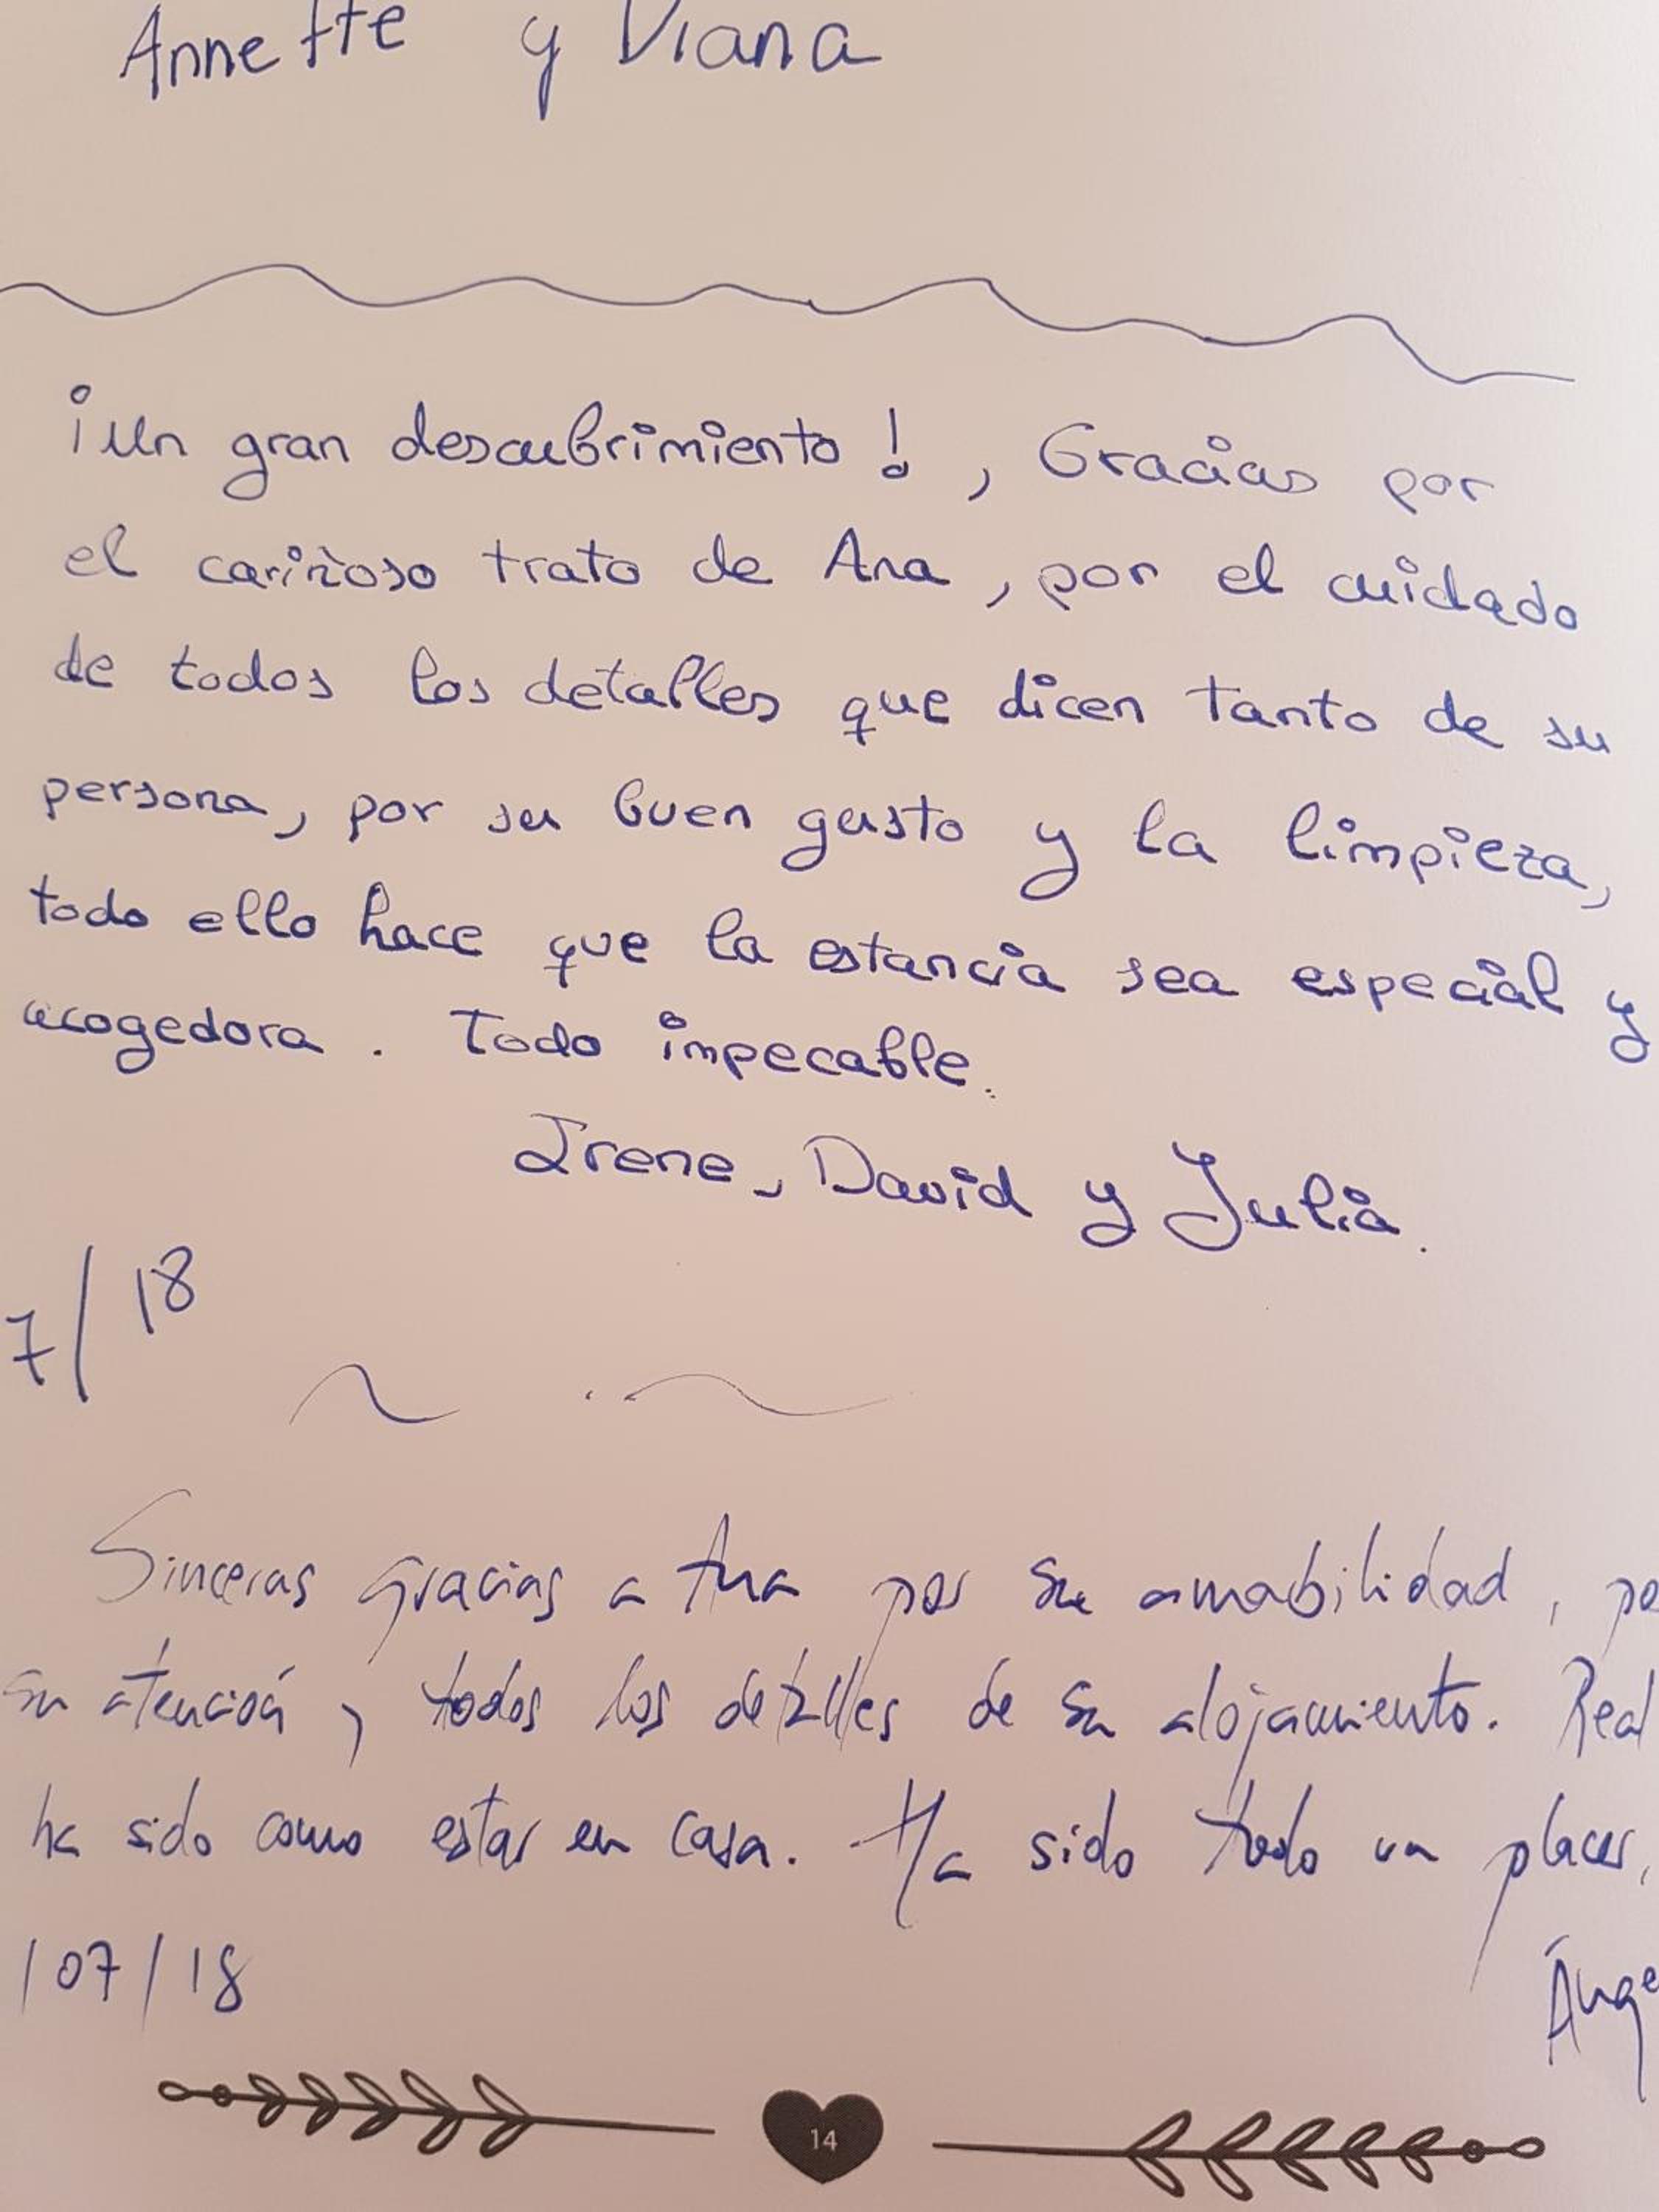 Annette y Diana
¡Un gran descubrimiento!, Gracias por
el cariñoso trato de Ana, por el cuidado
de todos los detalles que dicen tanto de su
persona, por su buen gusto y la limpieza,
todo ello hace que la estancia sea especial y
acogedora. Todo impecable.
Irene, David y Julia.
7/18
Sinceras gracias a Ana por su amabilidad, po
su atención y todos los detalles de su alojamiento. Real
ha sido como estar en casa. Ha sido todo un placer,
/07/18
Ánge
14